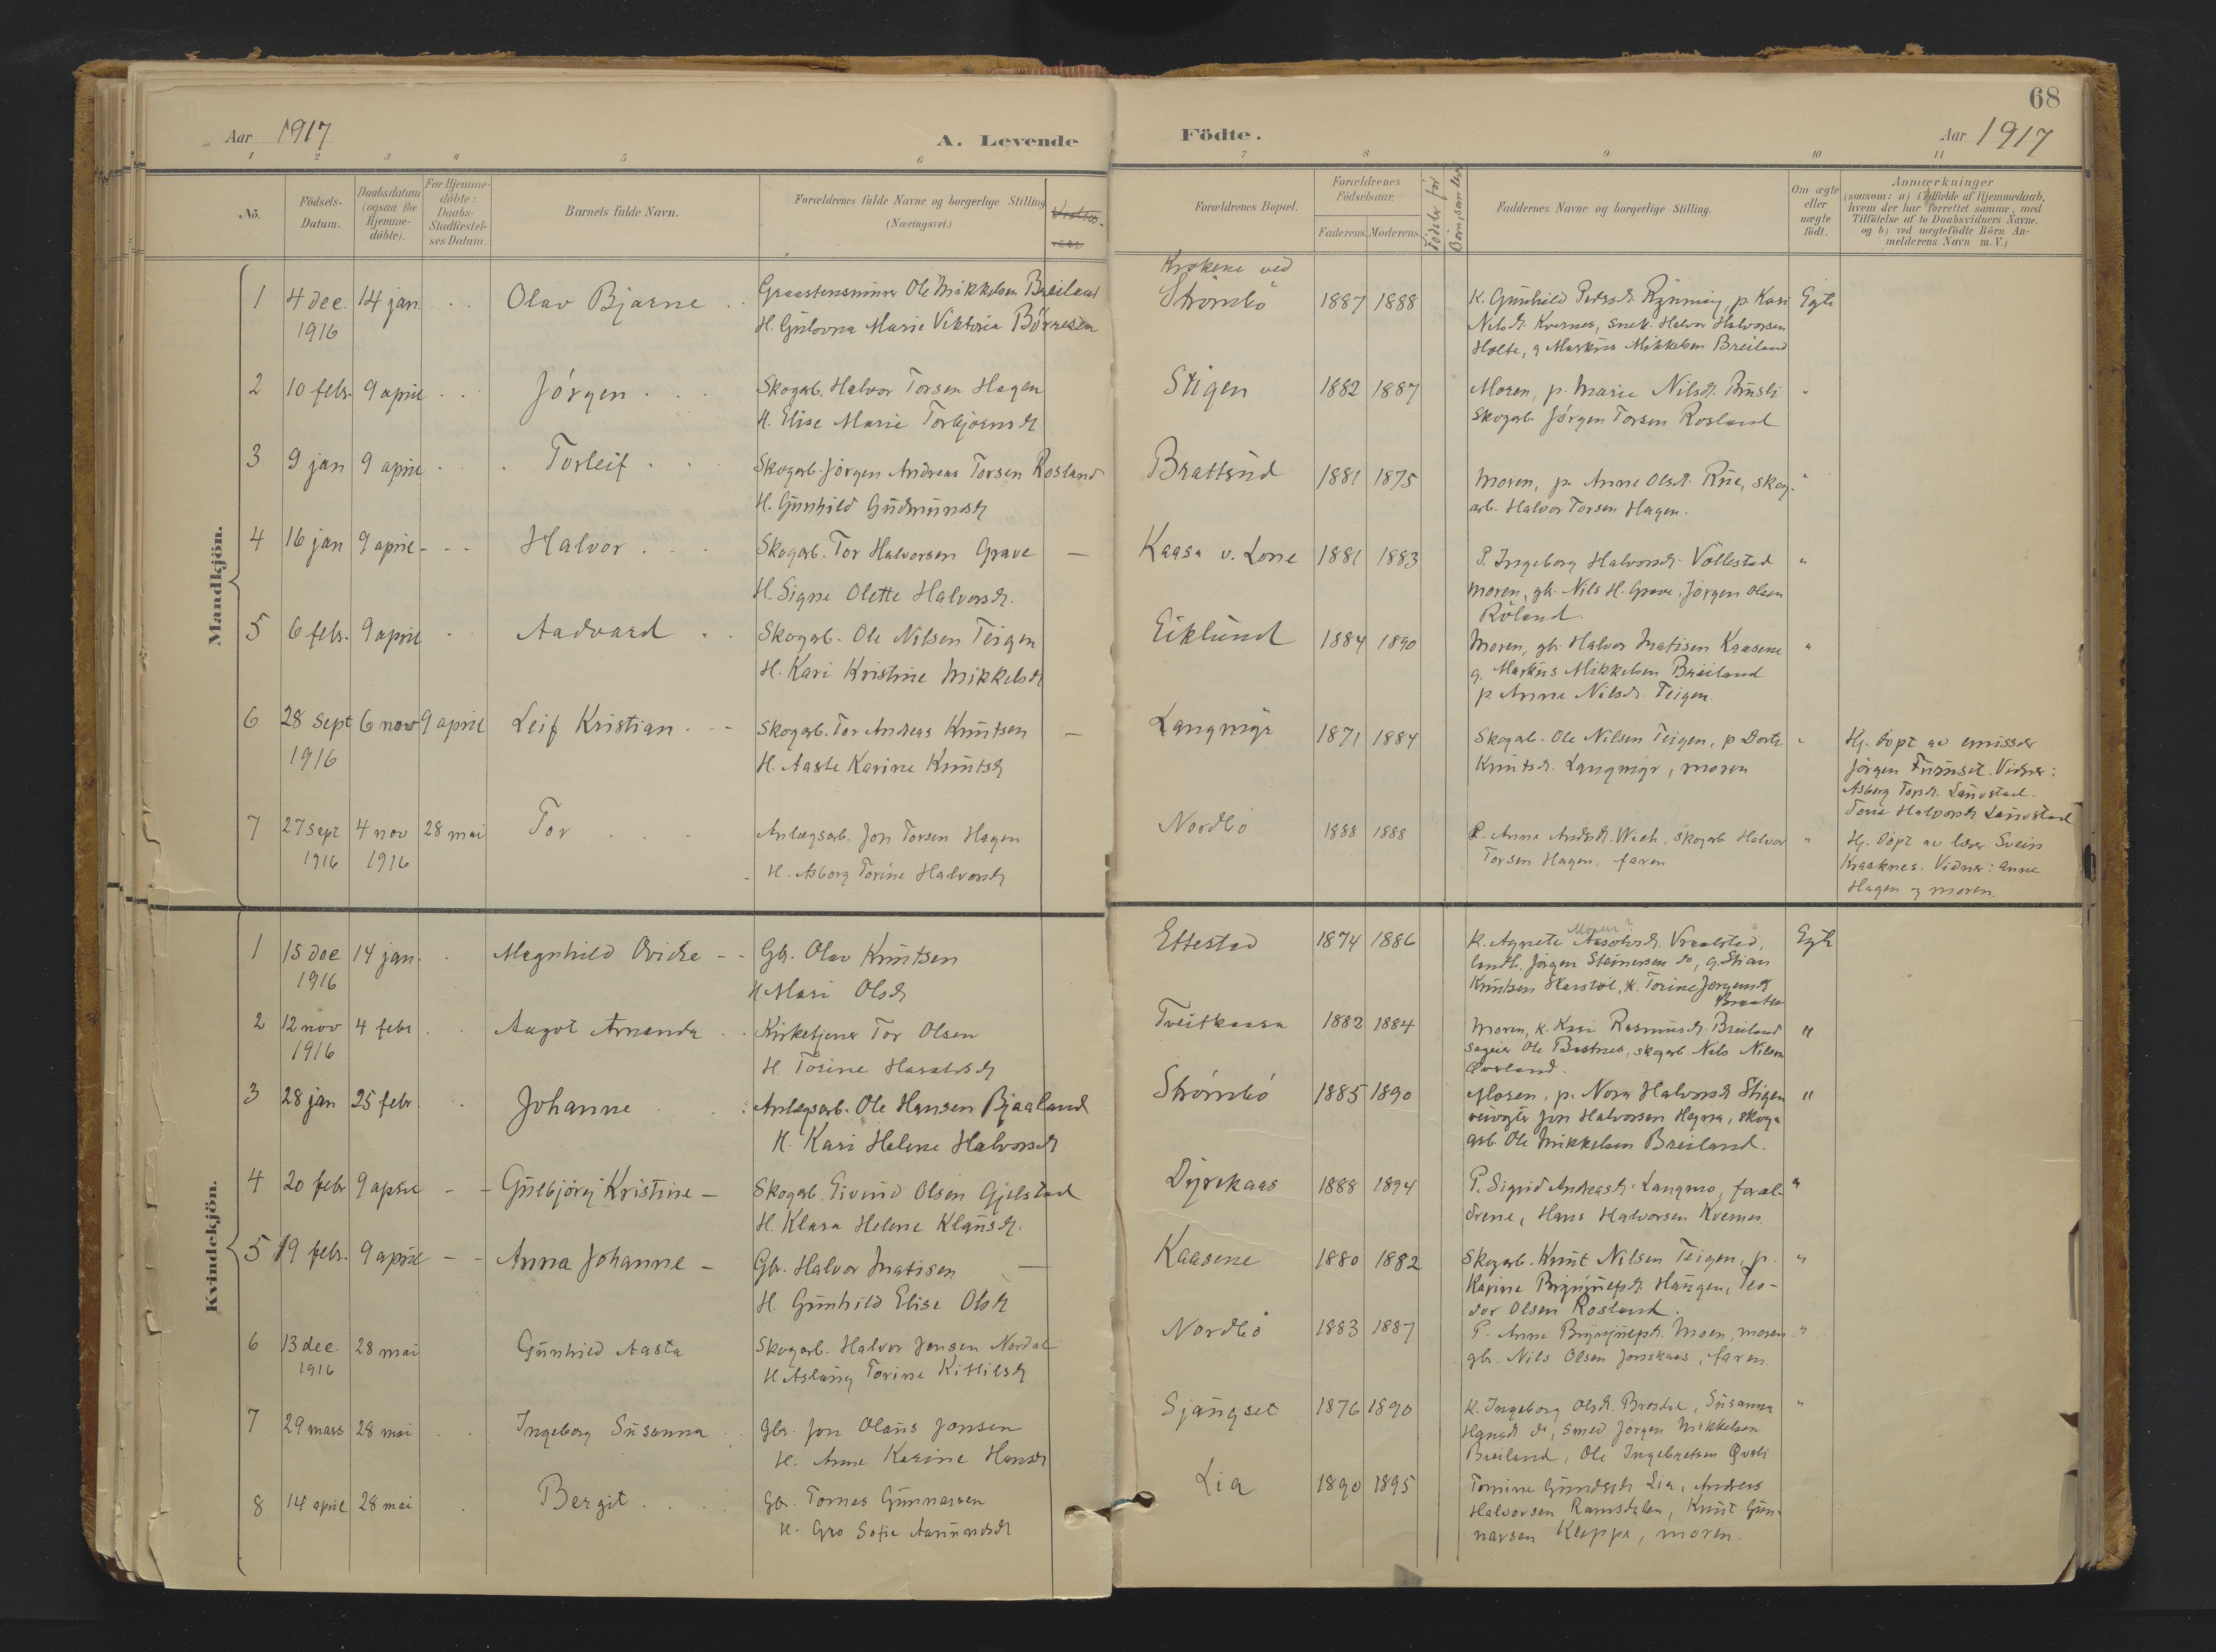 68
Aar 1917
A. Levende
Födte.
Aar 1917
1 2 3 4 5 6 7 8 9 10 11
No.
Födsels-
Datum.
Daabsdatum
(ogsaa for
Hjemme-
döbte).
For Hjemme-
döbte:
Daabs-
Stadfæstel-
ses Datum.
Barnets fulde Navn.
Forældrenes fulde Navne og borgerlige Stilling
(Næringsvei.)
Forældrenes Bopæl.
Forældrenes
Födselsaar.
Faderens. Moderens.
Faddernes Navne og borgerlige Stilling.
Om ægte
eller
uægte
födt.
Anmærkninger
(saasom: a) i Tilfælde af Hjemmedaab,
hvem der har forrettet samme, med
Tilföielse af to Daabsvidners Navne.
og b) ved uægtefödte Börn An-
melderens Navn m. V.)
Mandkjön.
1 4 dec. 14 jan. Olav Bjarne
1916
Ole Mikkelsen Breiland
H. Marie Viktoria Börresen
Krokene ved
Strömbö 1887 1888
K. Gunhild Pedersd. Rynning, p. Kari
Nilsd. Kvernes, snek. Halvor Halvorsen
Holte, g Markus Mikkelsen Breiland
Egte
2 10 febr. 9 april Jörgen
Skogarb. Halvor Torsen Hagen
H. Elise Marie Torbjörnsd.
Stigen 1882 1887
Moren, p. Marie Nilsd.
Skogarb. Jörgen Torsen Rosland
"
3 9 jan 9 april Torleif
Skogarb. Jörgen Andreas Torsen Rosland
H. Gunhild Gudmundsd.
Brattsund 1881 1875
Moren, p. Anne Olsd. Rue, skog-
arb. Halvor Torsen Hagen.
"
4 16 jan 9 april Halvor
Skogarb. Tor Halvorsen Grave
H. Signe Olette Halvorsd.
Kaasa v. Lone 1881 1883
P. Ingeborg Halvorsd. Vollestad
moren, gb. Nils H. Grave, Jörgen Olsen
Röland.
"
5 6 febr. 9 april Aadvard
Skogarb. Ole Nilsen Teigen
H. Kari Kristine Mikkelsd.
Eiklund 1884 1890
Moren, gbr. Halvor Matisen Kaasene
g. Markus Mikkelsen Breiland
p. Anne Nilsd. Teigen.
"
6 28 Sept 6 nov 9 april Leif Kristian
1916
Skogarb. Tor Andreas Knutsen
H. Aaste Karine Knutsd.
Langmyr 1871 1884
Skogarb. Ole Nilsen Teigen, p Dorte
Knutsd. Langmyr, moren
"
Hj. döpt av emissær
Jörgen Furuset. Vidner:
Asborg Torsd. Landstad.
Tone Halvorsd. Landstad
7 27 Sept 4 nov 28 mai Tor
1916 1916
Anlægsarb. Jon Torsen Hagen
H. Asborg Torine Halvorsd.
Nordbö 1888 1888
P. Anna Andrsd. Wieh, skogarb Halvor
Torsen Hagen, faren
"
Hj. döpt av lærer Svein
Kraaknes. Vidner: Anne
Hagen og moren.
Kvindekjön.
1 15 dec 14 jan. Magnhild Ovidia
1916
Gbr. Olav Knutsen
H. Mari Olsd.
Ettestad 1874 1886
Moren?
K. Agnete Vraalstad,
landh. Jörgen Steinersen do, g. Stian
Knutsen Harstöl, K. Torine Jörgensd.
Braaten
Egte
2 12 nov 4 febr Aagot Amanda
1916
Kirketjener Tor Olsen
H. Torine Haraldsd.
Tveitkaasa 1882 1884
Moren, K. Kari Rasmusd. Breiland
sageier Ole Bastnes, skogarb Nils Nilsen
"
3 28 jan 25 febr. Johanne
Anlægsarb. Ole Hansen Bjaaland
H. Kari Helene Halvorsd.
Strömbö 1885 1890
Moren, p. Nora Halvorsd. Stigen
veivogter Jon Halvorsen Hegna, skog-
arb. Ole Mikkelsen Breiland.
"
4 20 febr 9 april Gulbjörg Kristine
Skogarb. Eivind Olsen Gjelstad
H. Klara Helene Klausd.
Dyrekaas 1888 1894
P. Sigrid Andreasd. Langmo, foræl-
drene, Hans Halvorsen Kvernes.
"
5 19 febr. 9 april Anna Johanne
Gbr. Halvor Matisen
H. Gunhild Elise Olsd.
Kaasene 1880 1882
Skogarb. Knut Nilsen Teigen, p.
Karine Brynjulfsd. Haugen, Teo-
dor Olsen Rosland.
"
6 13 dec. 28 mai Gunhild Aasta
1916
Skogarb. Halvor Jensen Nordal
H. Aslaug Torine Kittilsd.
Nordbö 1883 1887
P. Anne Brynjulfsd. Moen, moren
gbr. Nils Olsen Jonskaas, faren.
"
7 29 mars 28 mai Ingeborg Susanna
Gbr. Jon Olaus Jonsen
H. Anne Karine Hansd.
Sjangset 1876 1890
K. Ingeborg Olsd. Susanna
Hansd. do, smed Jörgen Mikkelsen
Breiland, Ole Ingebretsen
"
8 14 april 28 mai Bergit
Gbr. Tomas Gunnarsen
H. Gro Sofie Aamundsd.
Lia 1890 1895
Tomine Lia, Anders
Halvorsen Ramsdalen, Knut Gun-
narsen Kleppa, moren.